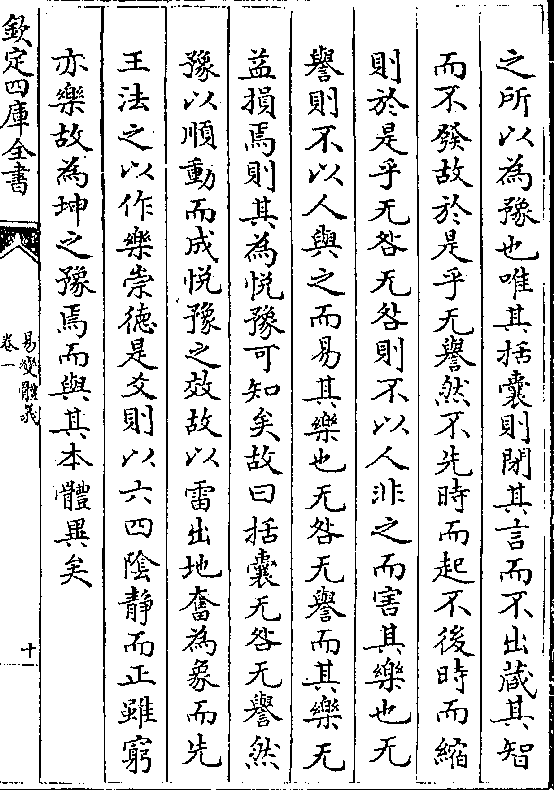 之所以為豫也唯其括囊則閉其言而不出藏其智
而不發故於是乎无譽然不先時而起不後時而縮
則於是乎无咎无咎則不以人非之而害其樂也无
譽則不以人與之而易其樂也无咎无譽而其樂无
益損焉則其為悅豫可知矣故曰括囊无咎无譽然
豫以順動而成悅豫之效故以雷出地奮為象而先
王法之以作樂崇德是爻則以六四陰靜而正雖窮
亦樂故為坤之豫焉而與其本體異矣
欽定四庫全書
易變體義
卷一
十